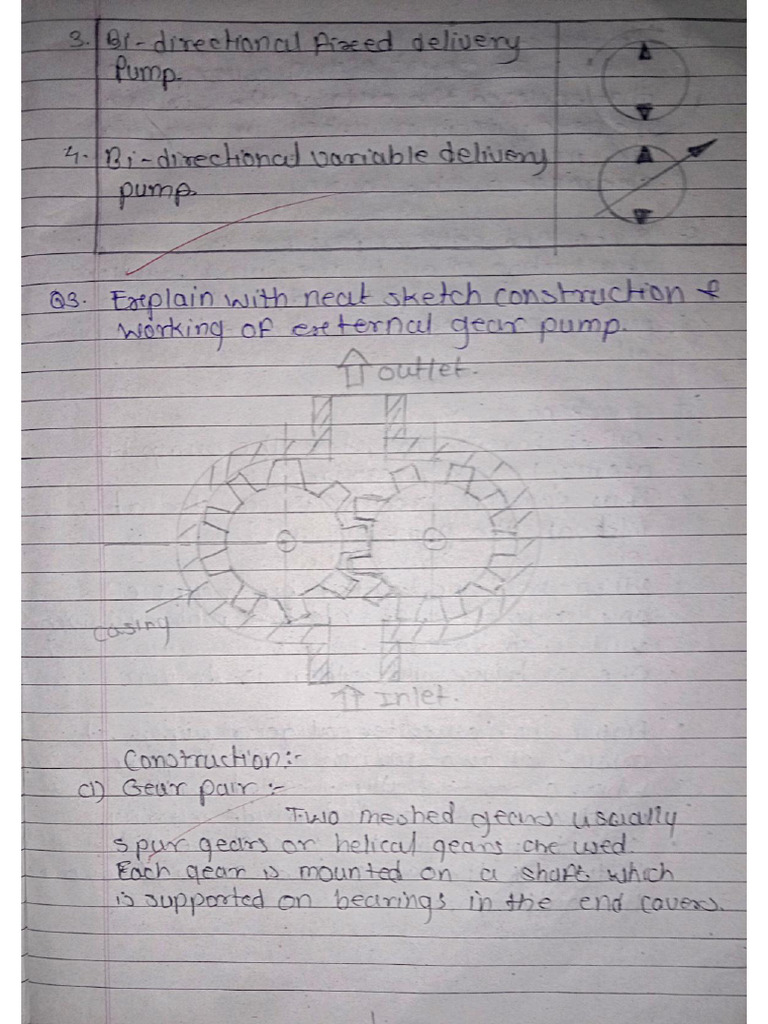 3. Bi-directional Fixed delivery
Pump.
4. Bi-directional variable delivery
pump.
Q3. Explain with neat sketch construction &
working of external gear pump.
outlet.
casing
Inlet.
Construction:-
(1) Gear pair :-
Two meshed gears usually
spur gears or helical gears are used.
Each gear is mounted on a shaft which
is supported on bearings in the end covers.